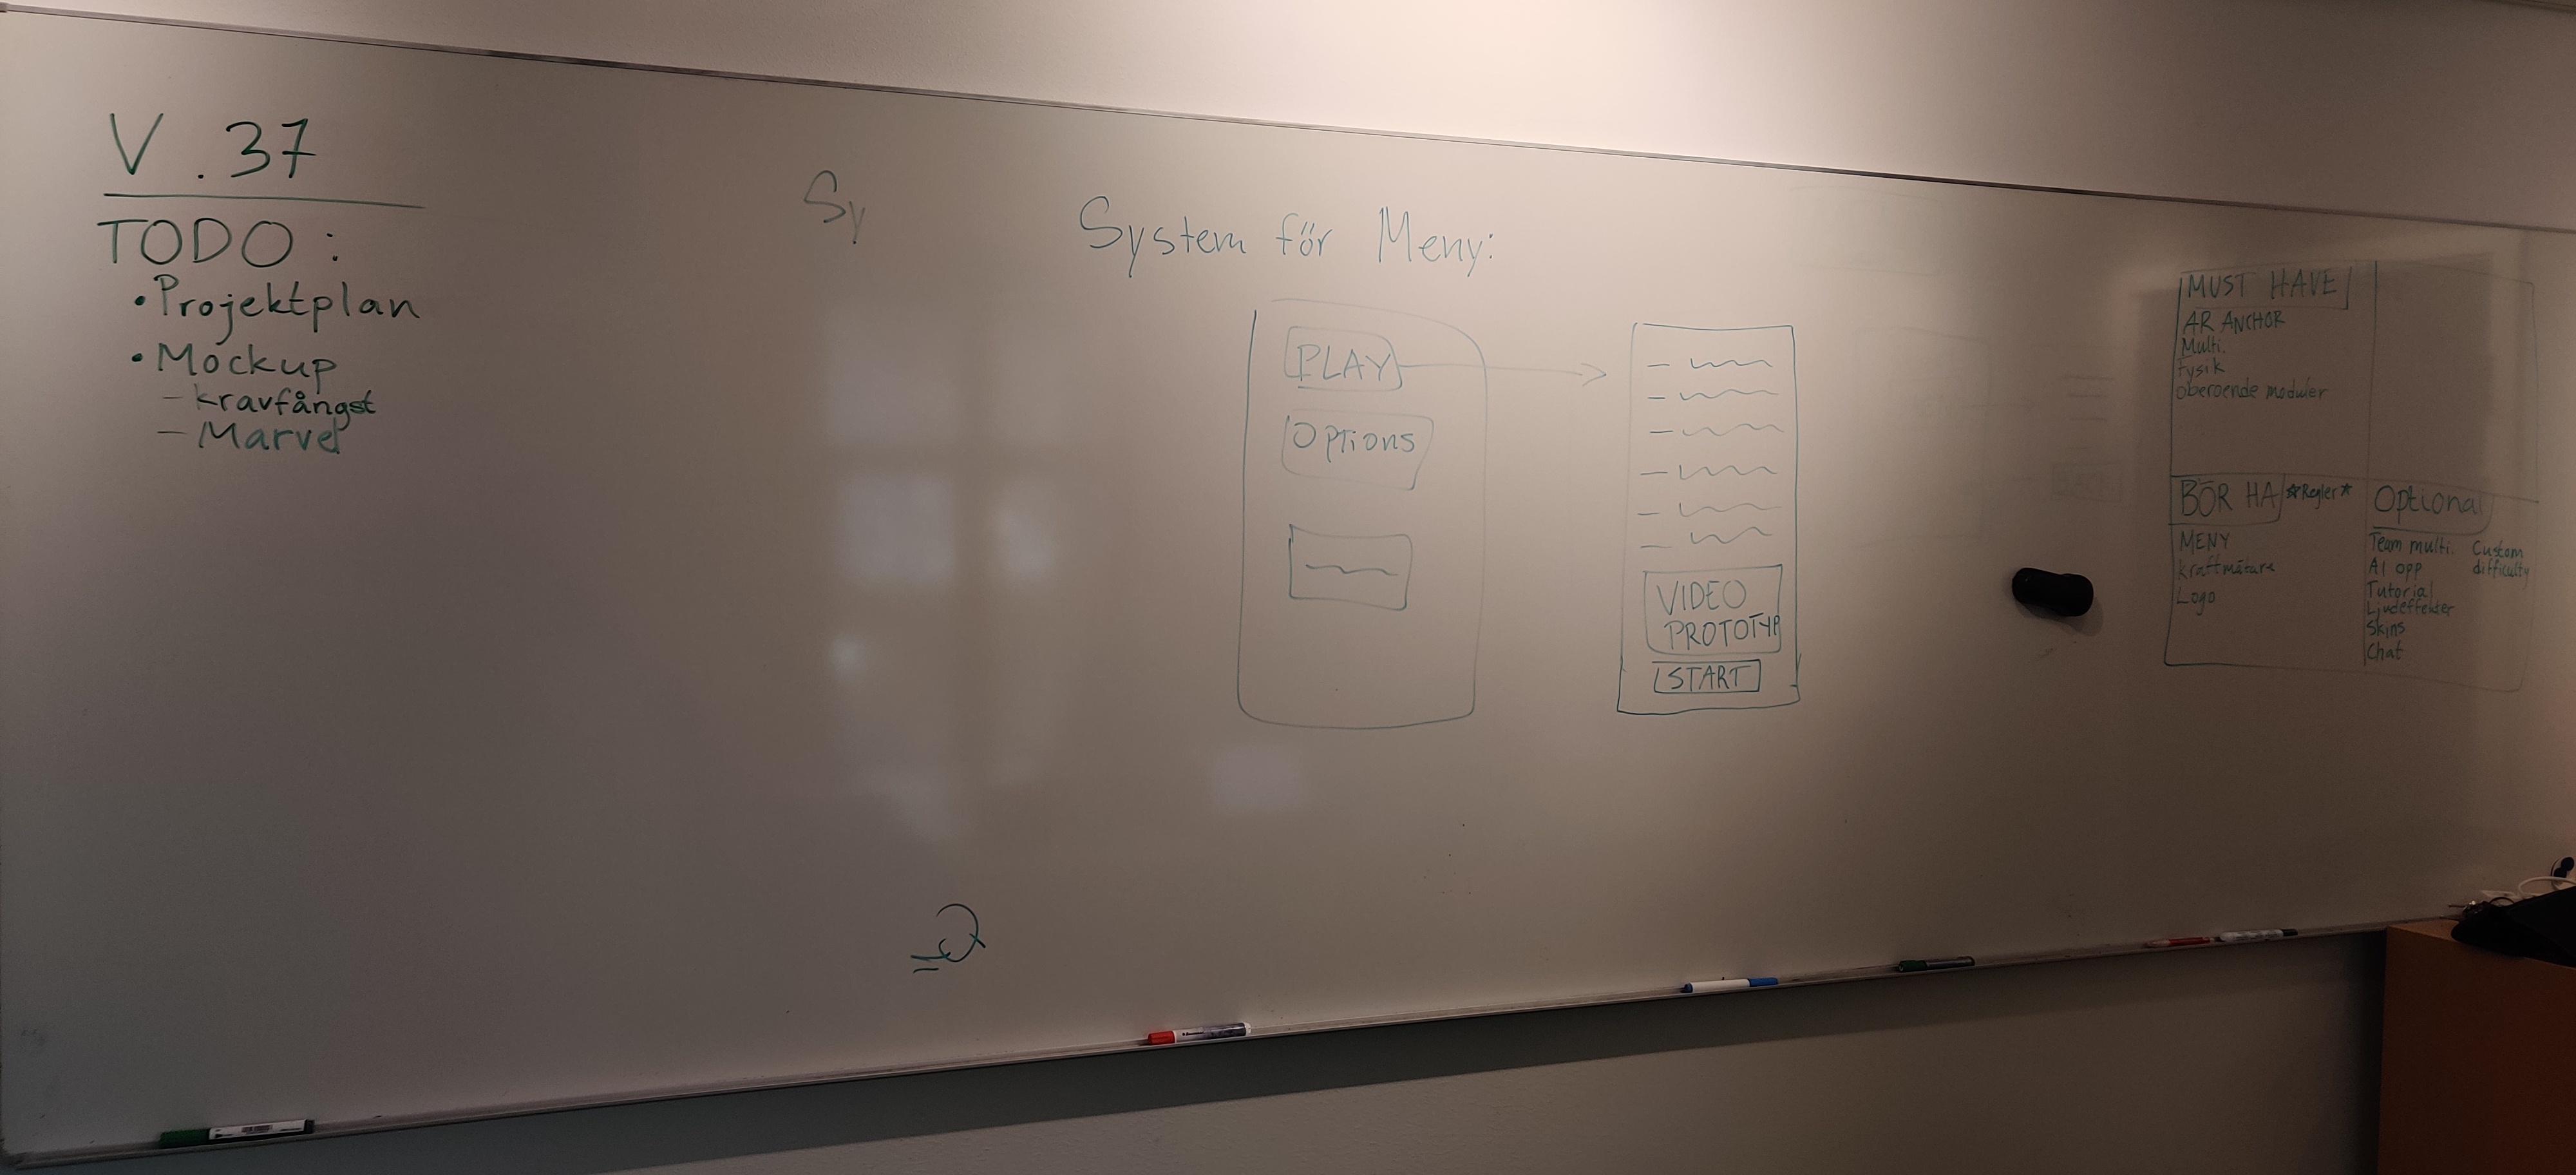 V.37
TODO:
• Projektplan
• Mockup
- kravfångst
- Marvel
Sy
System för Meny:
PLAY
Options
VIDEO
PROTOTYP
START
MUST HAVE
AR ANCHOR
Multi.
Fysik
oberoende moduler
BÖR HA
*Regler*
MENY
kraftmätare
Logo
Optional
Team multi.
AI opp
Tutorial
Ljudeffekter
Skins
Chat
Custom
difficulty